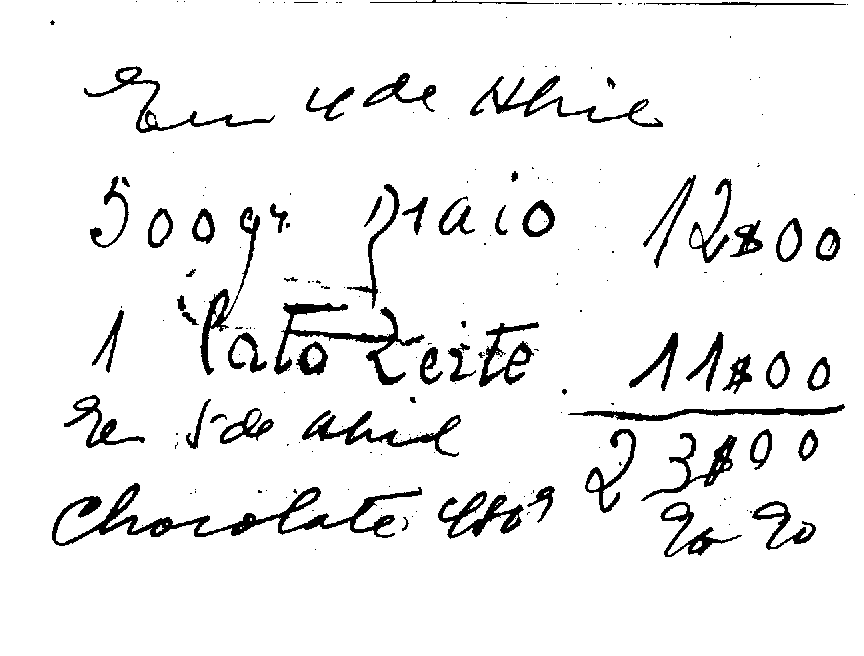 Em 4 de Abril
500 gr. paio 12$00
1 lata Leite 11$00
Em 5 de abril 23$00
Chocolate